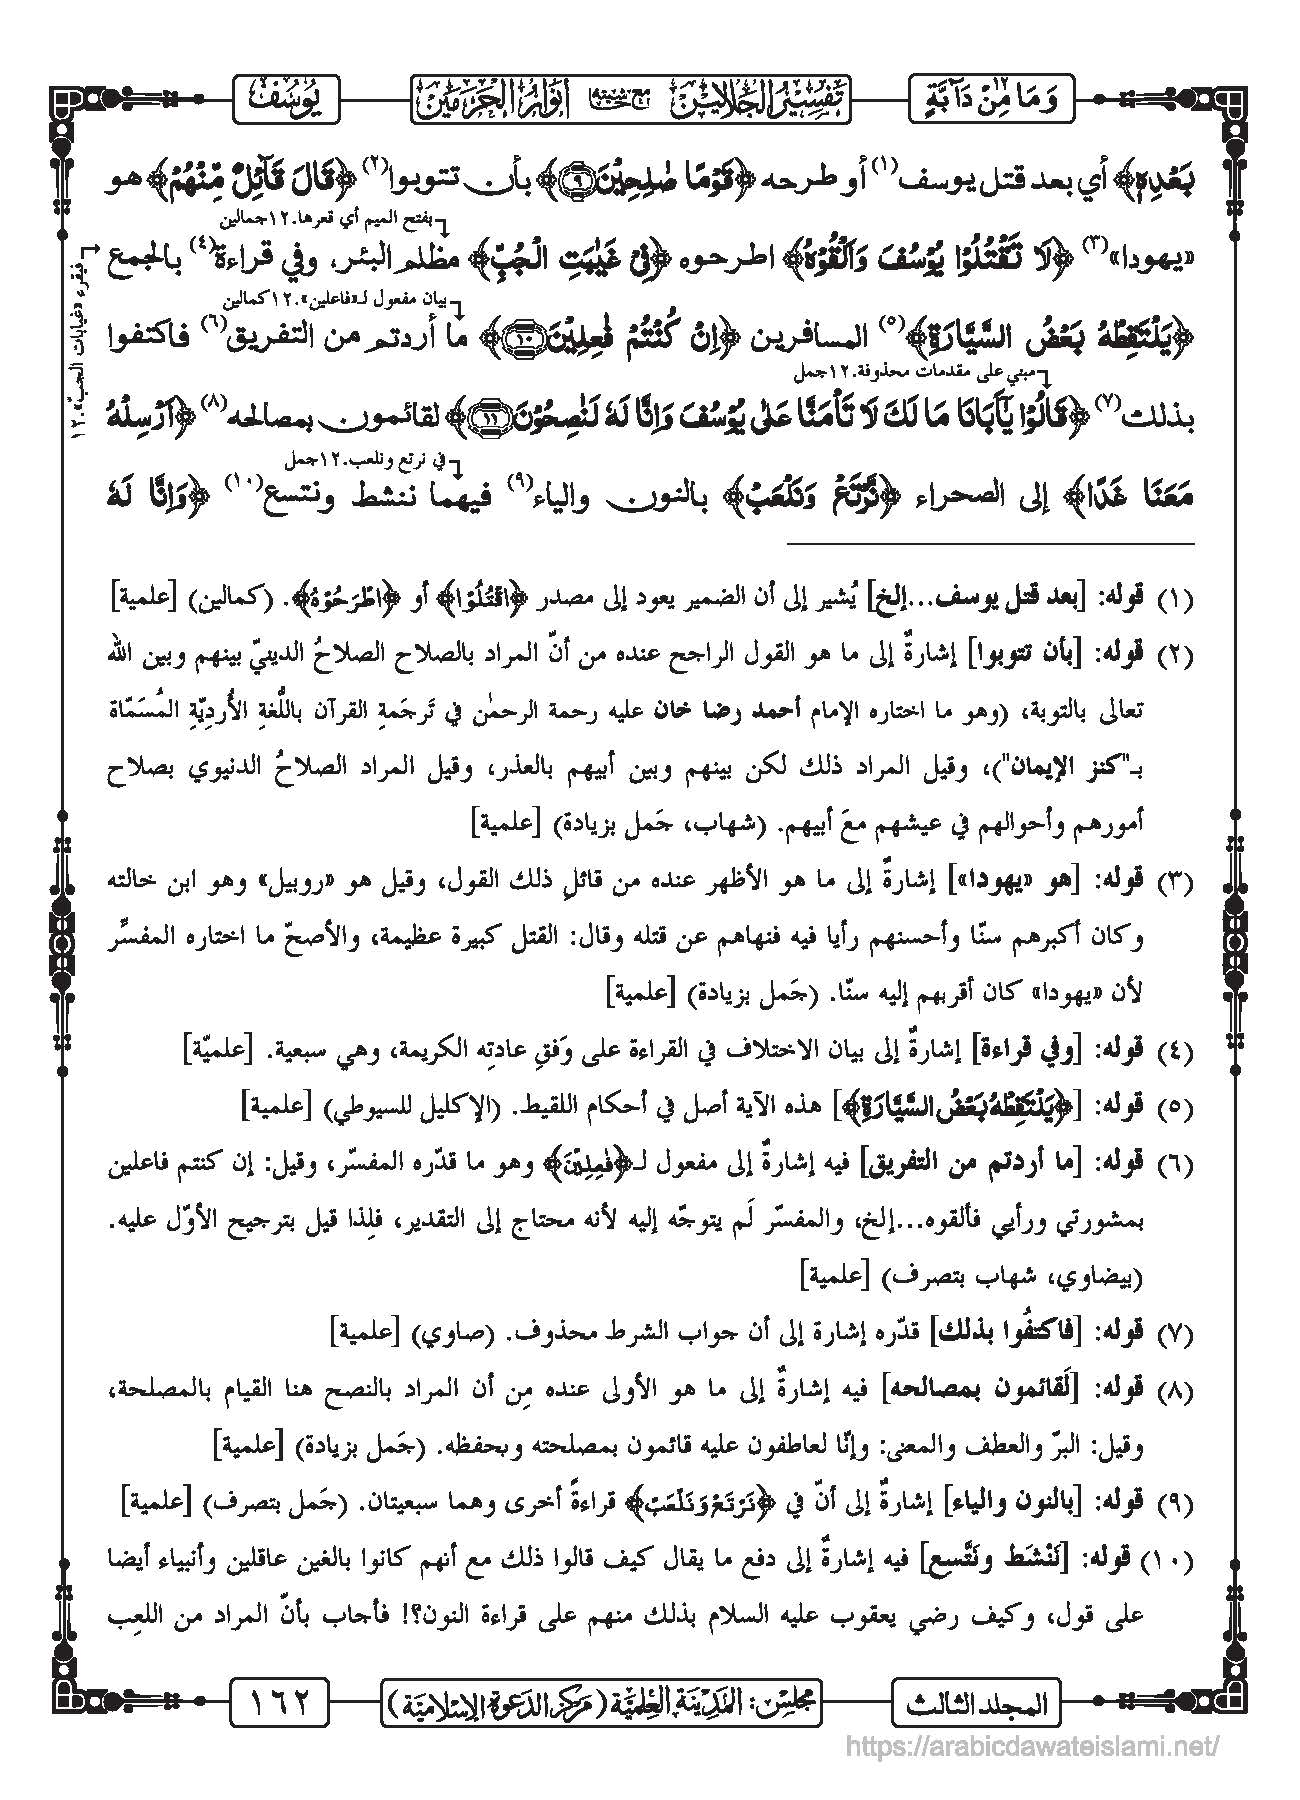 وَمَا مِنْ دَآبَّةٍ ١٢
تَفْسِيْرُ الْجَلَالَيْنِ مع حاشيته أَنْوَارُ الْحَرَمَيْنِ
يُوْسُفَ
بَعْدِهٖ﴾ أي بعد قتل يوسف(١) أو طرحه ﴿قَوْمًا صٰلِحِيْنَ ۝٩﴾ بأن تتوبوا(٢) ﴿قَالَ قَآئِلٌ مِّنْهُمْ﴾ هو
بفتح الميم أي قعرها.١٢جمالين
«يهودا»(٣) ﴿لَا تَقْتُلُوْا يُوْسُفَ وَاَلْقُوْهُ﴾ اطرحوه ﴿فِيْ غَيٰبَتِ الْجُبِّ﴾ مظلم البئر، وفي قراءة(٤) بالجمع
فيقرء «غيابات الجبّ».١٢
بيان مفعول لـ«فاعلين».١٢كمالين
﴿يَلْتَقِطْهُ بَعْضُ السَّيَّارَةِ﴾(٥) المسافرين ﴿اِنْ كُنْتُمْ فٰعِلِيْنَ ۝١٠﴾ ما أردتم من التفريق(٦) فاكتفوا
مبني على مقدمات محذوفة.١٢جمل
بذلك(٧) ﴿قَالُوْا يٰۤاَبَانَا مَا لَكَ لَا تَاْمَنَّا عَلٰى يُوْسُفَ وَاِنَّا لَهٗ لَنٰصِحُوْنَ ۝١١﴾ لقائمون بمصالحه(٨) ﴿اَرْسِلْهُ
في نرتع ونلعب.١٢جمل
مَعَنَا غَدًا﴾ إلى الصحراء ﴿نَّرْتَعْ وَنَلْعَبْ﴾ بالنون والياء(٩) فيهما ننشط ونتسع(١٠) ﴿وَاِنَّا لَهٗ
(١) قوله: [بعد قتل يوسف...إلخ] يُشير إلى أن الضمير يعود إلى مصدر ﴿اقْتُلُوْا﴾ أو ﴿اطْرَحُوْهُ﴾. (كمالين) [علمية]
(٢) قوله: [بأن تتوبوا] إشارةٌ إلى ما هو القول الراجح عنده من أنّ المراد بالصلاح الصلاحُ الدينيّ بينهم وبين الله
تعالى بالتوبة، (وهو ما اختاره الإمام أحمد رضا خان عليه رحمة الرحمٰن في تَرجَمةِ القرآن باللُّغةِ الأُردِيّةِ المُسَمّاة
بـ"كنز الإيمان")، وقيل المراد ذلك لكن بينهم وبين أبيهم بالعذر، وقيل المراد الصلاحُ الدنيوي بصلاح
أمورهم وأحوالهم في عيشهم معَ أبيهم. (شهاب، جَمل بزيادة) [علمية]
(٣) قوله: [هو «يهودا»] إشارةٌ إلى ما هو الأظهر عنده من قائلِ ذلك القول، وقيل هو «روبيل» وهو ابن خالته
وكان أكبرهم سنّا وأحسنهم رأيا فيه فنهاهم عن قتله وقال: القتل كبيرة عظيمة، والأصحّ ما اختاره المفسّر
لأن «يهودا» كان أقربهم إليه سنّا. (جَمل بزيادة) [علمية]
(٤) قوله: [وفي قراءة] إشارةٌ إلى بيان الاختلاف في القراءة على وَفقِ عادتِه الكريمة، وهي سبعية. [علميّة]
(٥) قوله: [﴿يَلْتَقِطْهُ بَعْضُ السَّيَّارَةِ﴾] هذه الآية أصل في أحكام اللقيط. (الإكليل للسيوطي) [علمية]
(٦) قوله: [ما أردتم من التفريق] فيه إشارةٌ إلى مفعول لـ﴿فٰعِلِيْنَ﴾ وهو ما قدّره المفسّر، وقيل: إن كنتم فاعلين
بمشورتي ورأيي فألقوه...إلخ، والمفسّر لَم يتوجّه إليه لأنه محتاج إلى التقدير، فلِذا قيل بترجيح الأوّل عليه.
(بيضاوي، شهاب بتصرف) [علمية]
(٧) قوله: [فاكتفُوا بذلك] قدّره إشارة إلى أن جواب الشرط محذوف. (صاوي) [علمية]
(٨) قوله: [لَقائمون بمصالحه] فيه إشارةٌ إلى ما هو الأولى عنده مِن أن المراد بالنصح هنا القيام بالمصلحة،
وقيل: البرّ والعطف والمعنى: وإنّا لعاطفون عليه قائمون بمصلحته وبحفظه. (جَمل بزيادة) [علمية]
(٩) قوله: [بالنون والياء] إشارةٌ إلى أنّ في ﴿نَرْتَعْ وَنَلْعَبْ﴾ قراءةً أخرى وهما سبعيتان. (جَمل بتصرف) [علمية]
(١٠) قوله: [نَنْشَط ونَتَّسِع] فيه إشارةٌ إلى دفع ما يقال كيف قالوا ذلك مع أنهم كانوا بالغين عاقلين وأنبياء أيضا
على قول، وكيف رضي يعقوب عليه السلام بذلك منهم على قراءة النون؟! فأجاب بأنّ المراد من اللعِب
المجلد الثالث
مجلس: المَدِيْنَة العِلْمِيَّة (مركز الدعوة الإسلاميّة)
١٦٢
https://arabicdawateislami.net/